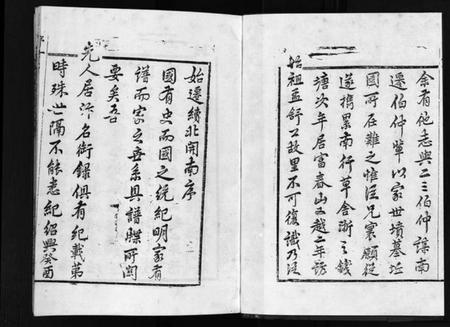 余有他志與二三伯仲謀南
遷伯仲輩以家世墳墓坵
國所在難之惟臣兄寰願從
遂携累南行草舍浙之錢
塘次年居富春山又越之年訪
始祖孟舒公故里不可復識乃
始遷績北開南序
國有史而國之統紀明家有
譜而家之世系具譜牒所関
要矣吾
先人居汴名衔錄俱有紀載第
時殊世隔不能悉紀紹興癸酉